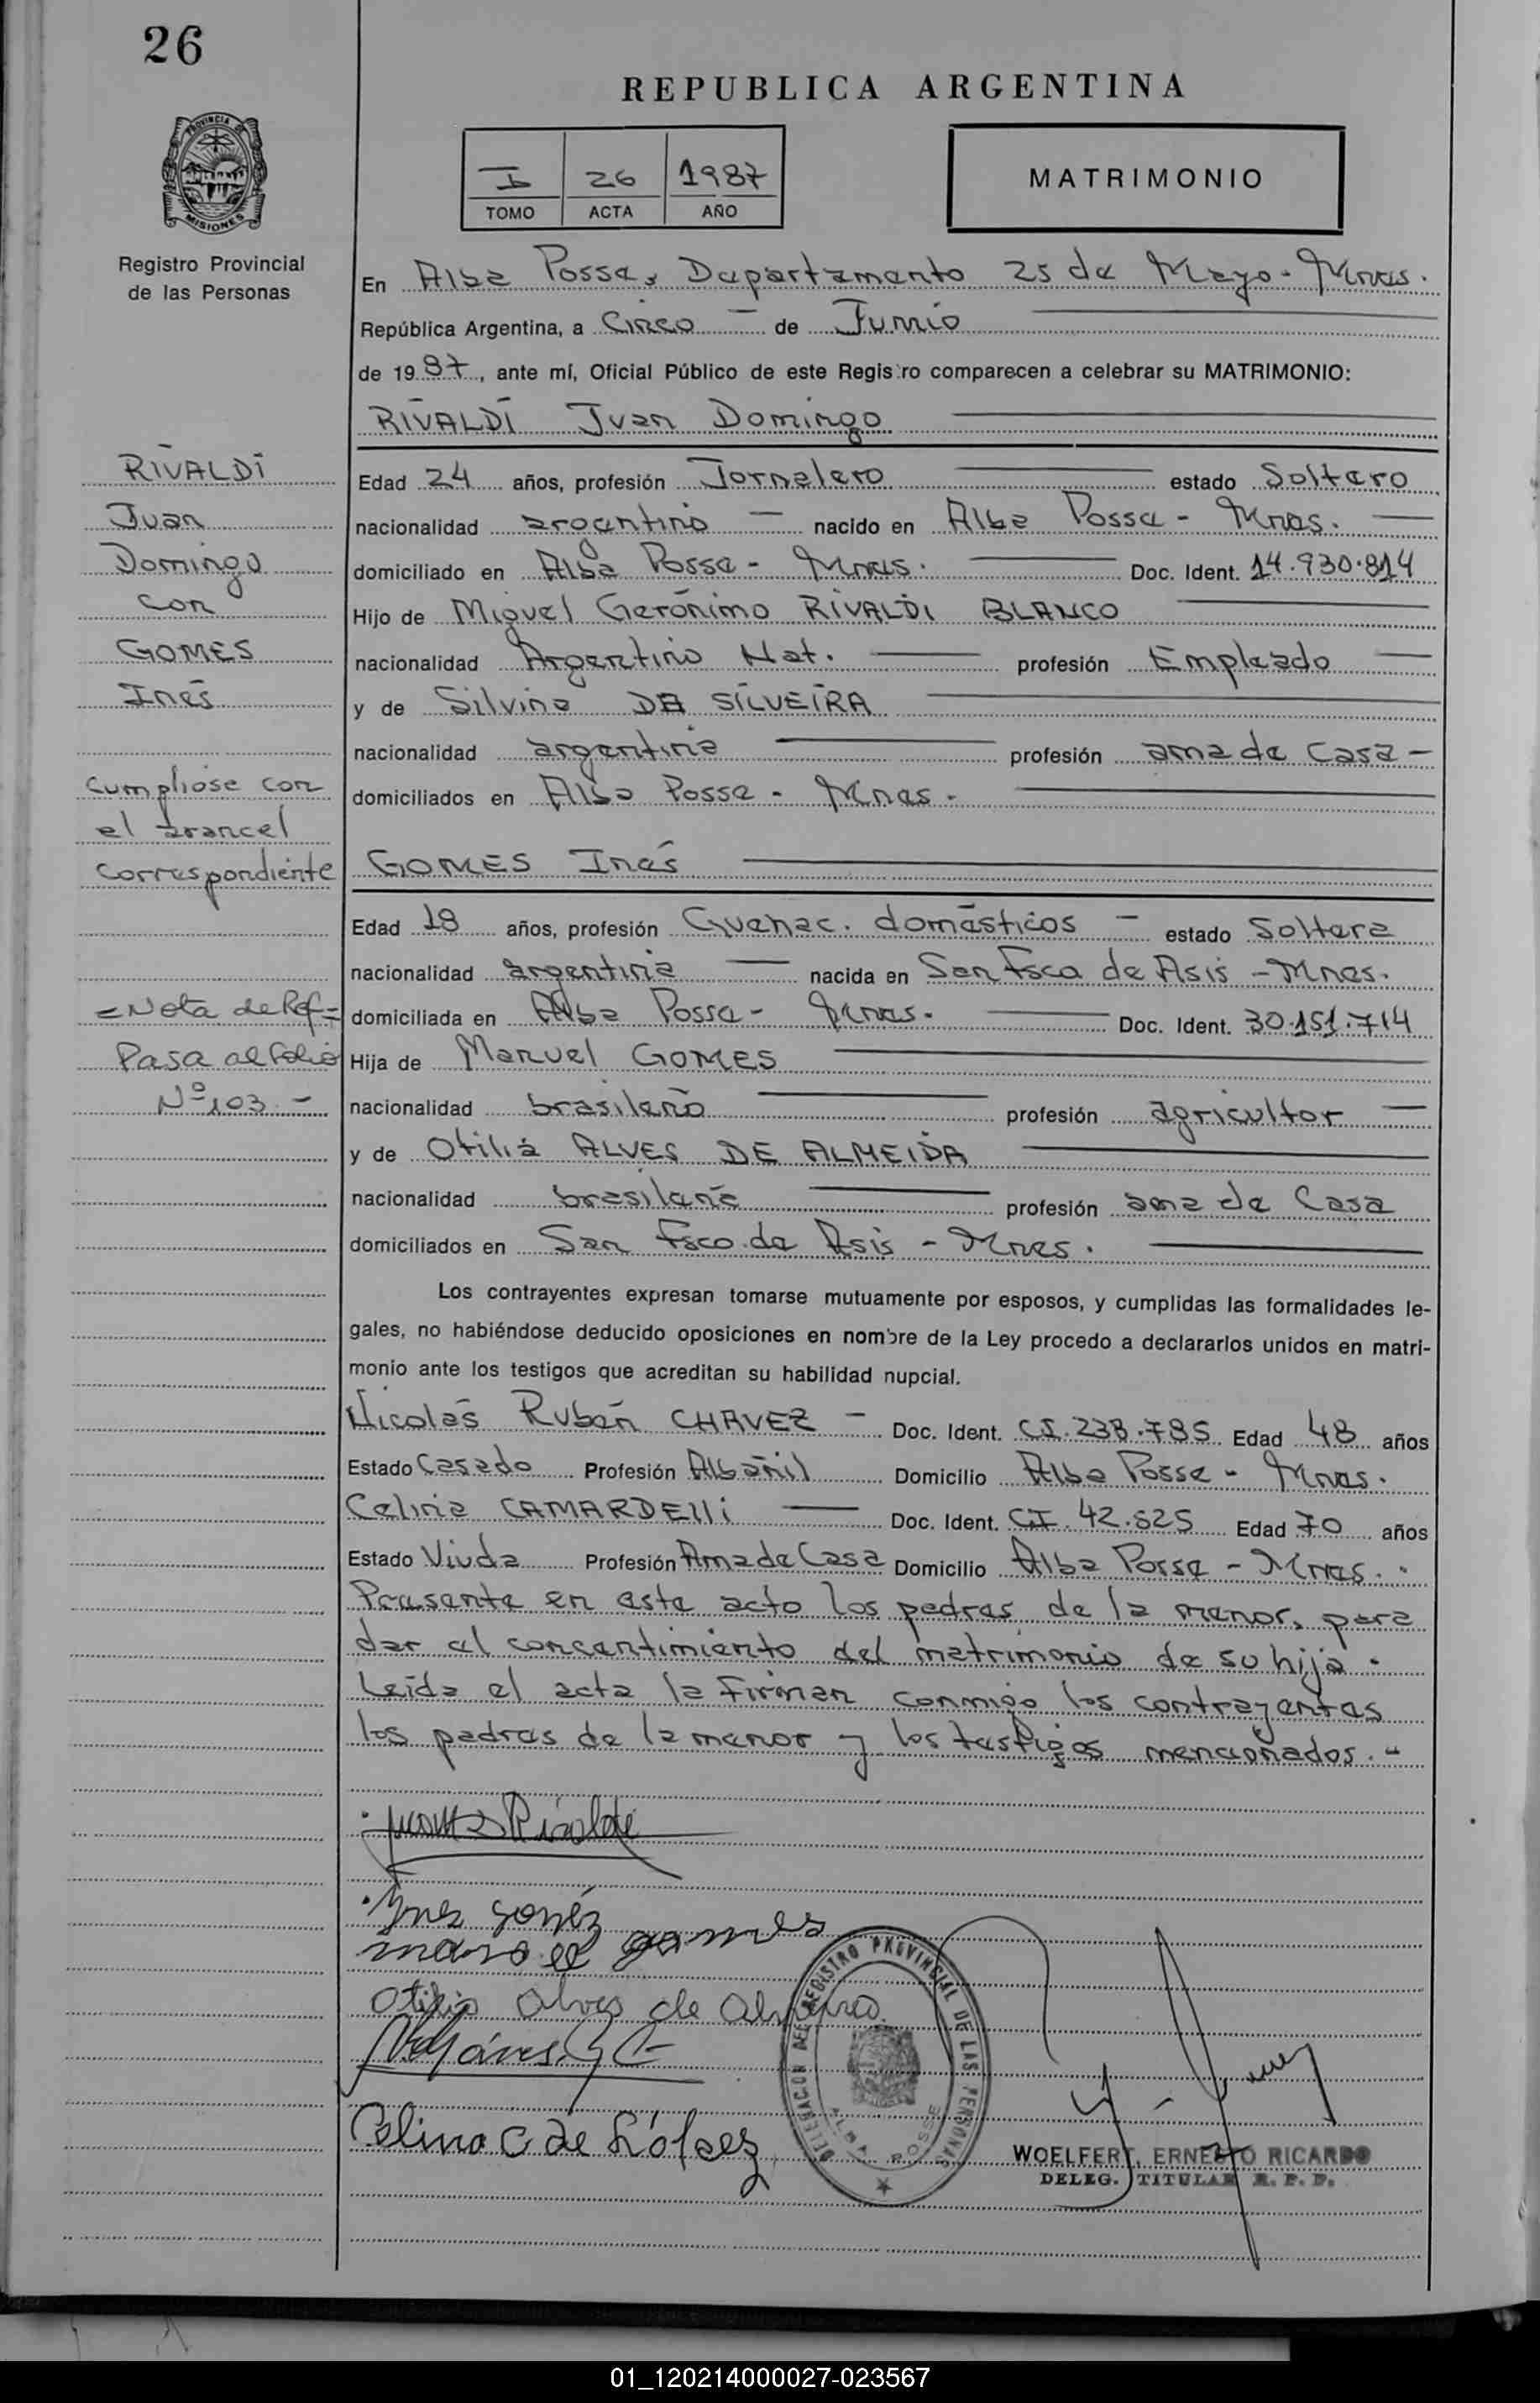 26
REPUBLICA ARGENTINA
PROVINCIA DE
MISIONES
Registro Provincial
de las Personas
I 26 1987
TOMO ACTA AÑO
MATRIMONIO
En Alba Posse, Departamento 25 de Mayo - Mnes.
República Argentina, a Cinco de Junio
de 1987, ante mí, Oficial Público de este Registro comparecen a celebrar su MATRIMONIO:
RIVALDI Juan Domingo
Edad 24 años, profesión Jornalero estado Soltero
nacionalidad argentino nacido en Alba Posse - Mnes.
domiciliado en Alba Posse - Mnes. Doc. Ident. 14.930.814
Hijo de Miguel Gerónimo RIVALDI BLANCO
nacionalidad Argentino Nat. profesión Empleado
y de Silvina DA SILVEIRA
nacionalidad argentina profesión ama de Casa -
domiciliados en Alba Posse - Mnes.
GOMES Inés
Edad 18 años, profesión Quehac. domésticos - estado Soltera
nacionalidad argentina nacida en San Fsco de Asis - Mnes.
domiciliada en Alba Posse - Mnes. Doc. Ident. 30.151.714
Hija de Manuel GOMES
nacionalidad brasileño profesión agricultor
y de Otilia ALVES DE ALMEIDA
nacionalidad brasileña profesión ama de Casa
domiciliados en San Fsco. de Asis - Mnes.
Los contrayentes expresan tomarse mutuamente por esposos, y cumplidas las formalidades le-
gales, no habiéndose deducido oposiciones en nombre de la Ley procedo a declararlos unidos en matri-
monio ante los testigos que acreditan su habilidad nupcial.
Nicolás Rubén CHAVEZ - Doc. Ident. CI. 238.785 Edad 48 años
Estado Casado Profesión Albañil Domicilio Alba Posse - Mnes.
Celina CAMARDELLi Doc. Ident. CI. 42.525 Edad 70 años
Estado Viuda Profesión Ama de Casa Domicilio Alba Posse - Mnes.
Presente en este acto los padres de la menor, para
dar el concentimiento del matrimonio de su hija.
Leída el acta la firman conmigo los contrayentes
los padres de la menor y los testigos mencionados.-
RIVALDI
Juan
Domingo
con
GOMES
Inés
Cumpliose con
el arancel
Correspondiente
= Nota de Ref =
Pasa al Folio
Nº 103 -
Ynes goméz
manoel gomes
Otilia Alves de Almeira
Celina C de López
DELEGACION DEL REGISTRO PROVINCIAL DE LAS PERSONAS
ALBA POSSE
WOELFERT, ERNESTO RICARDO
DELEG. TITULAR R. P. P.
01_120214000027-023567